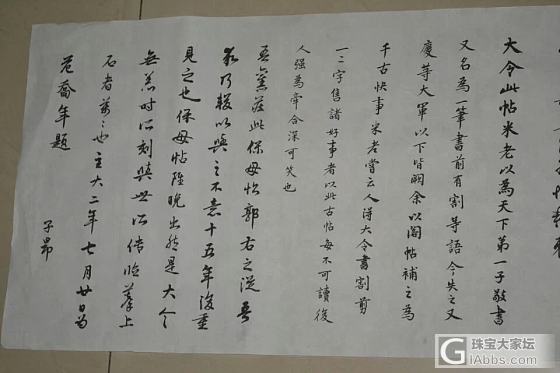 大令此帖米老以為天下第一子敬書
又名為一筆書前有割等語今失之又
慶等大軍以下皆闕余以閣帖補之為
千古快事米老嘗云人得大令書割剪
一二字售諸好事者以此古帖每不可讀後
人強為牽合深可笑也
吾舊蔵此保母帖郭右之從吾
求乃輟以與之不意十五年後重
見之也保母帖雖晚出然是大令
無恙時所刻與世所傳臨摹上
石者萬〻也至大二年七月廿日為
范喬年題
子昂
珠宝大家坛
GIAbbs.com